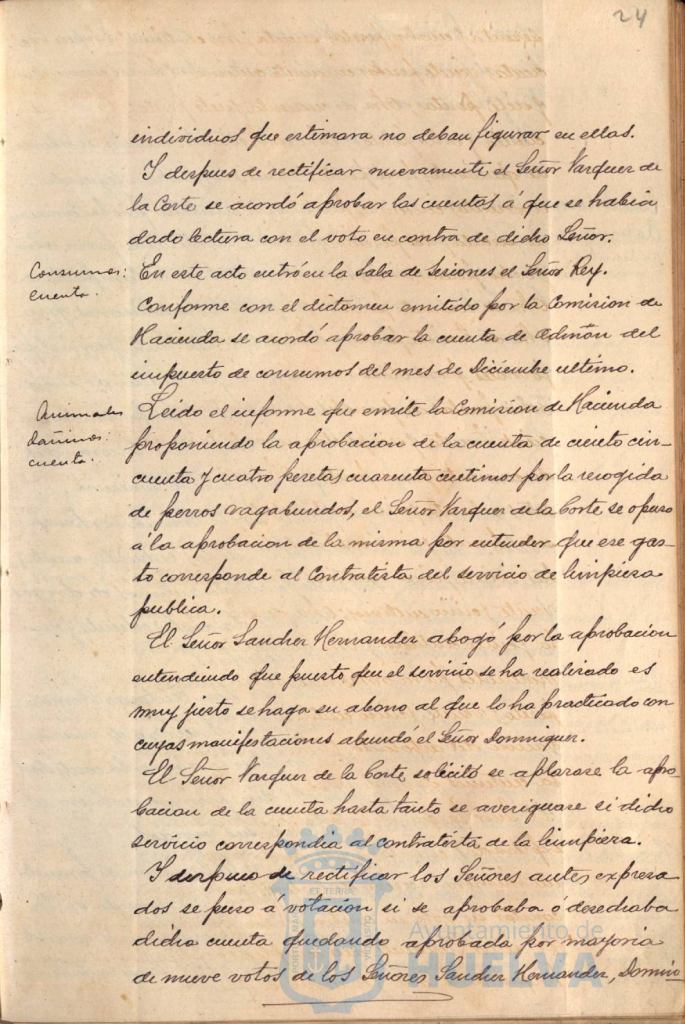 24
individuos que estimara no deban figurar en ellas.
Y despues de rectificar nuevamente el Señor Vazquez de
la Corte se acordó aprobar las cuentas á que se habia
dado lectura con el voto en contra de dicho Señor.
Consumos:
cuenta.
En este acto entró en la Sala de Sesiones el Señor Rey.
Conforme con el dictamen emitido por la Comision de
Hacienda se acordó aprobar la cuenta de admón del
impuesto de consumos del mes de Diciembre ultimo.
Animales
dañinos:
cuenta.
Leido el informe que emite la Comision de Hacienda
proponiendo la aprobacion de la cuenta de ciento cin-
cuenta y cuatro pesetas cuarenta centimos por la recogida
de perros vagabundos, el Señor Vazquez de la Corte se opuso
á la aprobacion de la misma por entender que ese gas-
to corresponde al Contratista del servicio de limpieza
publica.
El Señor Sanchez Hernandez abogó por la aprobacion
entendiendo que puesto que el servicio se ha realizado es
muy justo se haga su abono al que lo ha practicado con
cuyas manifestaciones abundó el Señor Dominguez.
El Señor Vazquez de la Corte solicitó se aplazase la apro-
bacion de la cuenta hasta tanto se averiguase si dicho
servicio correspondia al contratista de la limpieza.
Y despues de rectificar los Señores antes expresa
dos se puso á votacion si se aprobaba ó desechaba
dicha cuenta quedando aprobada por mayoria
de nueve votos de los Señores Sanchez Hernandez, Domin
Ayuntamiento de
HUELVA